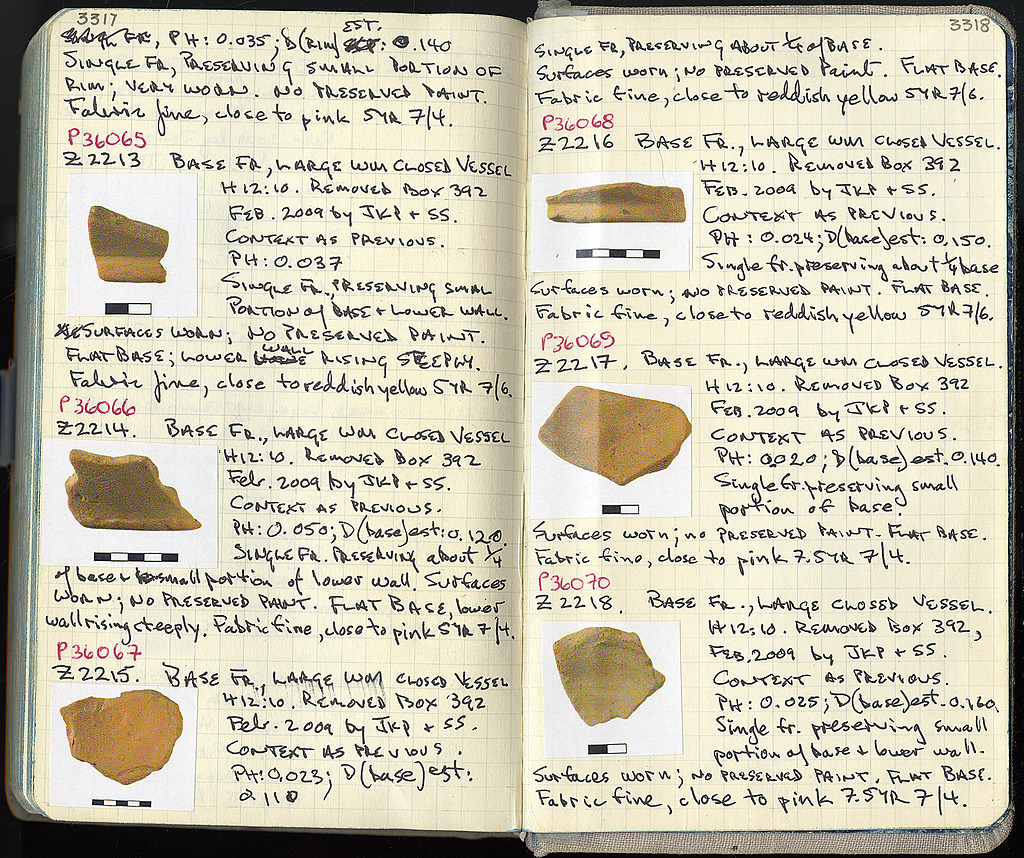 3317
EST.
FR, PH: 0.035; D(RIM) : 0.140
SINGLE FR, PRESERVING SMALL PORTION OF
RIM; VERY WORN. NO PRESERVED PAINT.
Fabric fine, close to pink 5YR 7/4.
P36065
Z2213 BASE FR, LARGE WM CLOSED VESSEL
H12:10. REMOVED BOX 392
FEB. 2009 by JKP + SS.
CONTEXT AS PREVIOUS.
PH: 0.037
SINGLE FR., PRESERVING SMALL
PORTION OF BASE + LOWER WALL.
SURFACES WORN; NO PRESERVED PAINT.
FLAT BASE; LOWER WALL RISING STEEPLY.
Fabric fine, close to reddish yellow 5YR 7/6.
P36066
Z2214. BASE FR., LARGE WM CLOSED VESSEL
H12:10. REMOVED BOX 392
Febr. 2009 by JKP + SS.
CONTEXT AS PREVIOUS.
PH: 0.050; D(base)est: 0.120.
SINGLE FR. PRESERVING about 1/4
of base + small portion of lower wall. Surfaces
WORN; NO PRESERVED PAINT. FLAT BASE, lower
wall rising steeply. Fabric fine, close to pink 5YR 7/4.
P36067
Z2215. BASE FR, LARGE WM CLOSED VESSEL
H12:10. REMOVED BOX 392
Febr. 2009 by JKP + SS.
CONTEXT AS PREVIOUS.
PH: 0.023; D(base)est:
0.110
3318
SINGLE FR, PRESERVING ABOUT 1/4 of BASE.
Surfaces worn; NO PRESERVED Paint. FLAT BASE.
Fabric fine, close to reddish yellow 5YR 7/6.
P36068
Z2216 BASE FR., LARGE WM CLOSED VESSEL.
H12:10. REMOVED BOX 392
FEB. 2009 by JKP + SS.
CONTEXT AS PREVIOUS.
PH: 0.024; D(base)est: 0.150.
Single fr. preserving about 1/4 base
Surfaces worn; NO PRESERVED PAINT. FLAT BASE.
Fabric fine, close to reddish yellow 5YR 7/6.
P36069
Z2217. BASE FR., LARGE WM CLOSED VESSEL.
H12:10. REMOVED BOX 392
FEB. 2009 by JKP + SS.
CONTEXT AS PREVIOUS.
PH: 0.020; D(base)est. 0.140.
Single fr. preserving small
portion of base.
Surfaces worn; no PRESERVED PAINT. FLAT BASE.
Fabric fine, close to pink 7.5YR 7/4.
P36070
Z2218. BASE FR., LARGE CLOSED VESSEL.
H12:10. REMOVED BOX 392,
FEB. 2009 by JKP + SS.
CONTEXT AS PREVIOUS.
PH: 0.025; D(base)est. 0.160.
Single fr. preserving small
portion of base + lower wall.
Surfaces worn; NO PRESERVED PAINT. FLAT BASE.
Fabric fine, close to pink 7.5YR 7/4.